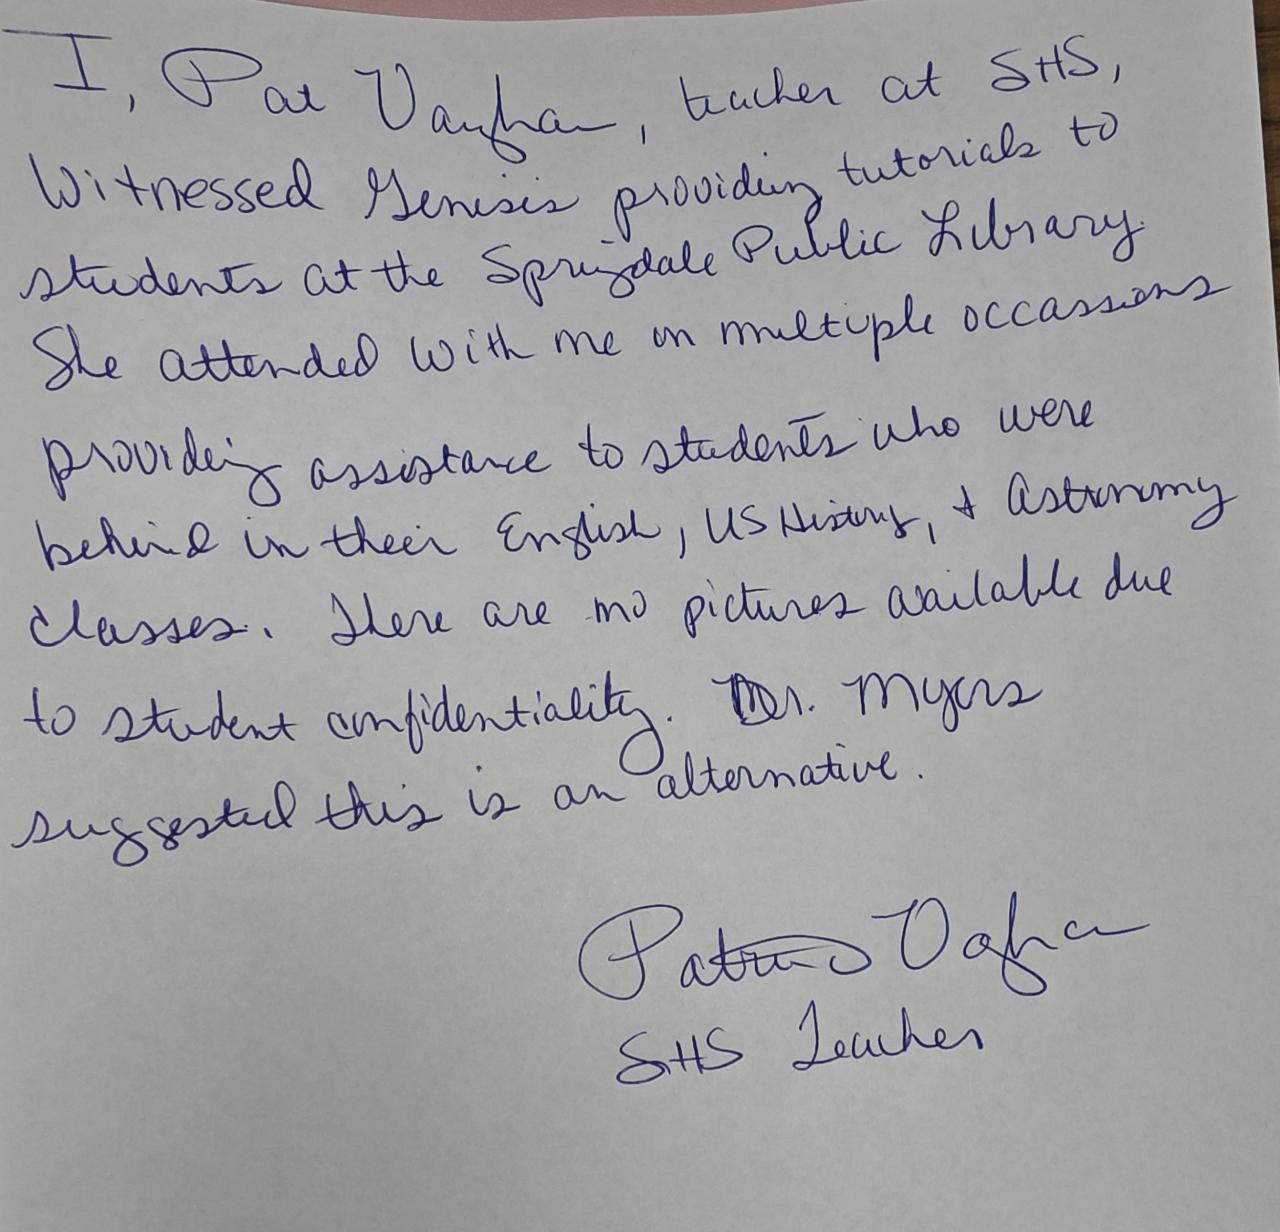 I, Pat Vaughan, teacher at SHS,
Witnessed Genisis providing tutorials to
students at the Springdale Public Library.
She attended with me on multiple occassions
providing assistance to students who were
behind in their English, US History, & Astronomy
classes. There are no pictures available due
to student confidentiality. Dr. Myers
suggested this is an alternative.
Patricia Vaghan
SHS Teacher